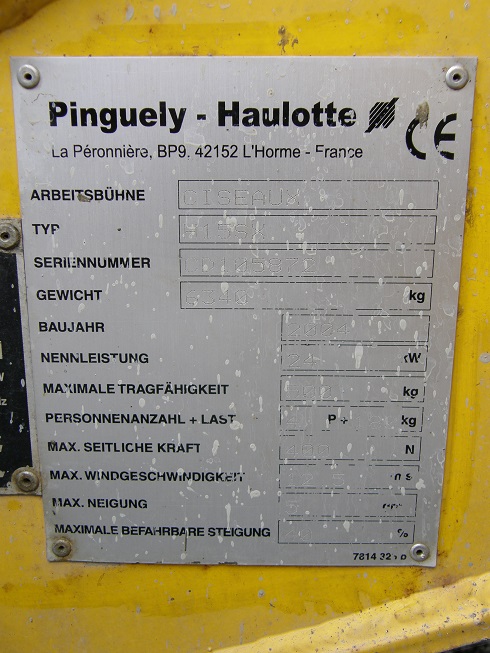 Pinguely - Haulotte
La Péronnière, BP9. 42152 L'Horme - France
CE
ARBEITSBÜHNE CISEAUX
TYP H15SX
SERIENNUMMER
GEWICHT 6340 kg
BAUJAHR 2004
NENNLEISTUNG kW
MAXIMALE TRAGFÄHIGKEIT kg
PERSONNENANZAHL + LAST P + kg
MAX. SEITLICHE KRAFT N
MAX. WINDGESCHWINDIGKEIT
MAX. NEIGUNG
MAXIMALE BEFAHRBARE STEIGUNG %